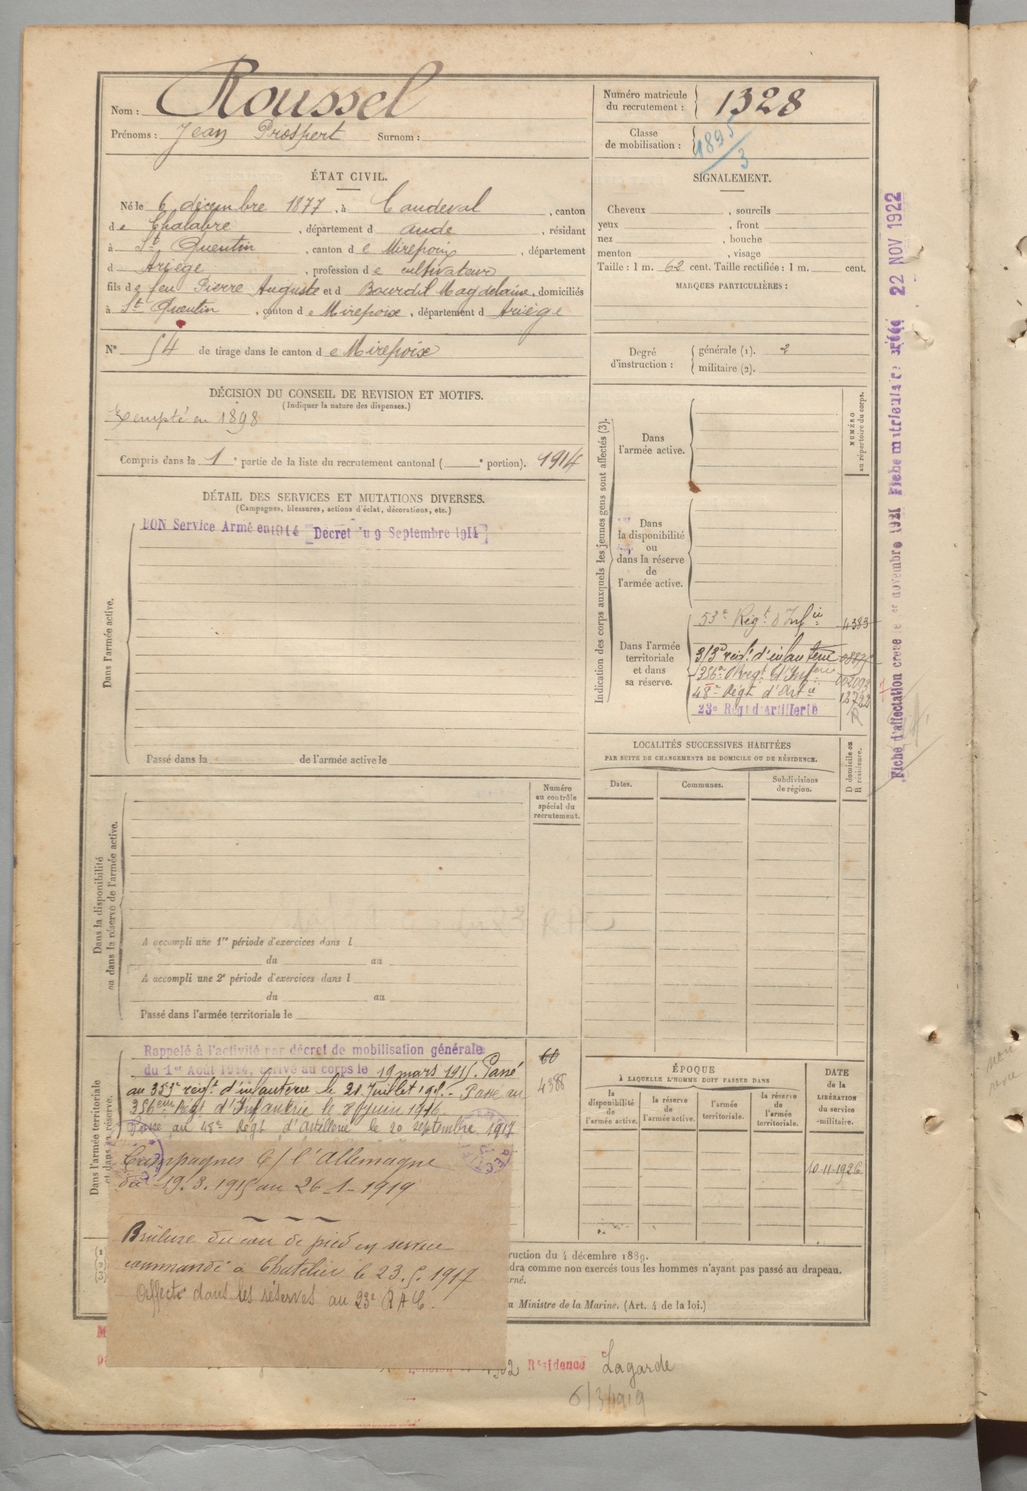 Nom : Roussel
Prénoms : Jean Prospert Surnom :
Numéro matricule
du recrutement : 1328
Classe
de mobilisation : 1895/3
ÉTAT CIVIL.
Né le 6 décembre 1877, à Caudeval, canton
de Chalabre, département d Aude, résidant
à St Quentin, canton de Mirepoix, département
d Ariège, profession de cultivateur
fils de feu Pierre Auguste et d Bourdil Magdelaine, domiciliés
à St Quentin, canton de Mirepoix, département d Ariège
N° 54 de tirage dans le canton de Mirepoix
SIGNALEMENT.
Cheveux , sourcils
yeux , front
nez , bouche
menton , visage
Taille : 1 m. 62 cent. Taille rectifiée : 1 m. cent.
MARQUES PARTICULIÈRES :
Degré
d'instruction :
générale (1). 2
militaire (2).
DÉCISION DU CONSEIL DE REVISION ET MOTIFS.
(Indiquer la nature des dispenses.)
Exempté en 1898
Compris dans la 1e partie de la liste du recrutement cantonal ( e portion). 1914
DÉTAIL DES SERVICES ET MUTATIONS DIVERSES.
(Campagnes, blessures, actions d'éclat, décorations, etc.)
BON Service Armé en 1914 Décret du 9 Septembre 1914
Dans l'armée active.
Passé dans la de l'armée active le
Indication des corps auxquels les jeunes gens sont affectés (3).
NUMÉRO
au répertoire du corps.
Dans
l'armée active.
Dans
la disponibilité
ou
dans la réserve
de
l'armée active.
Dans l'armée
territoriale
et dans
sa réserve.
53e Régt d'Infie 4383
313e régt d'infanterie
356e Régt d'Infanie
48e Régt d'Artie
23e Régt d'Artillerie
LOCALITÉS SUCCESSIVES HABITÉES
PAR SUITE DE CHANGEMENTS DE DOMICILE OU DE RÉSIDENCE.
D domicile ou
R résidence.
Dates.
Communes.
Subdivisions
de région.
Numéro
au contrôle
spécial du
recrutement.
Dans la disponibilité
ou dans la réserve de l'armée active.
A accompli une 1re période d'exercices dans l
du au
A accompli une 2e période d'exercices dans l
du au
Passé dans l'armée territoriale le
Dans l'armée territoriale
et dans sa réserve.
Rappelé à l'activité par décret de mobilisation générale
du 1er Août 1914, arrivé au corps le 19 mars 1915. Passé
au régt d'infanterie le 21 Juillet 1915. Passé au
356eme Régt d'Infanterie le 8 Juin 1916
Passé au 48e Régt d'Artillerie le 20 septembre 1917
60
4388
Campagnes C/ l'Allemagne
du 19.3.1915 au 26-1-1919
Brûlure du cou de pied en service
commandé à Chatelier le 23.5.1917
Affecté dans les réserves au 23e RAC.
ÉPOQUE
À LAQUELLE L'HOMME DOIT PASSER DANS
la
disponibilité
de
l'armée active.
la réserve
de
l'armée active.
l'armée
territoriale.
la réserve
de
l'armée
territoriale.
DATE
de la
LIBÉRATION
du service
militaire.
10-11-1926
ruction du 4 décembre 1889.
dra comme non exercés tous les hommes n'ayant pas passé au drapeau.
rné.
u Ministre de la Marine. (Art. 4 de la loi.)
Résidence Lagarde
6/3/1919
Fiche d'affectation créée le novembre 1921 Fiche matriculaire créée 22 NOV 1922